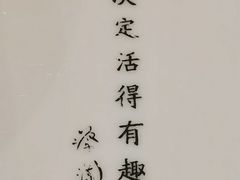 决定活得有趣